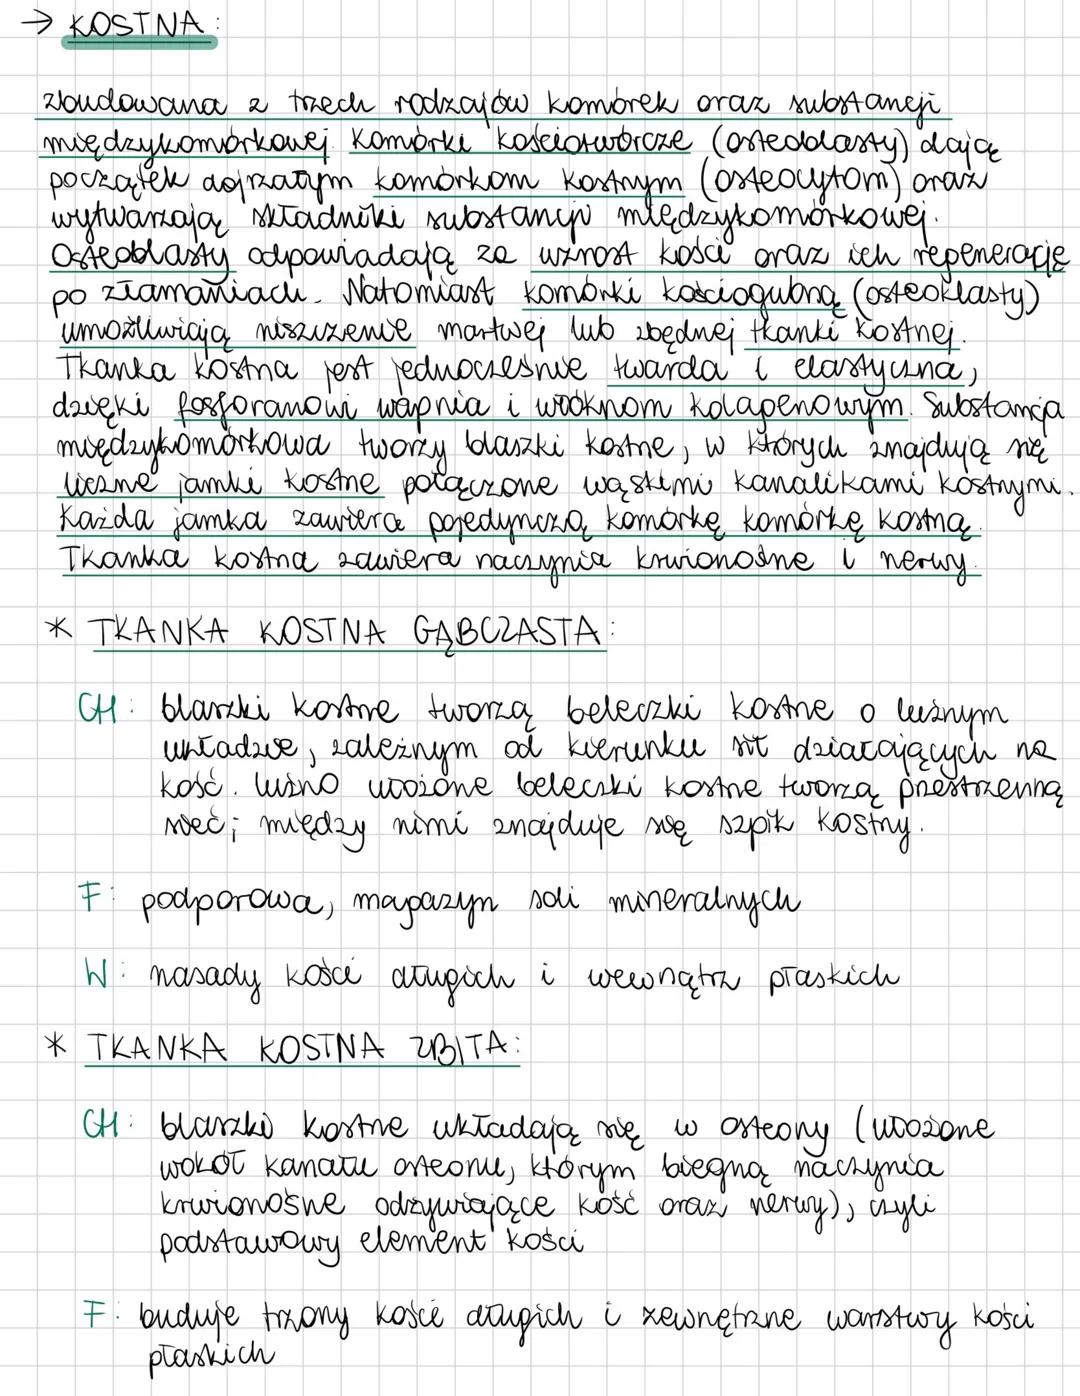 → KOSTNA:
zbudowana z trzech rodzajów komórek oraz substancji
międzykomórkowej. Komórki kościotwórcze (osteoblasty) dają
początek dojrzałym komórkom kostnym (osteocytom) oraz
wytwarzają składniki substancji międzykomórkowej.
Osteoblasty odpowiadają za wzrost kości oraz ich regenerację
po złamaniach. Natomiast komórki kościogubną (osteoklasty)
umożliwiają niszczenie martwej lub zbędnej tkanki kostnej.
Tkanka kostna jest jednocześnie twarda i elastyczna,
dzięki fosforanowi wapnia i włóknom kolagenowym. Substancja
międzykomórkowa tworzy blaszki kostne, w których znajdują się
liczne jamki kostne połączone wąskimi kanalikami kostnymi.
Każda jamka zawiera pojedynczą komórkę komórkę kostną.
Tkanka kostna zawiera naczynia krwionośne i nerwy.
* TKANKA KOSTNA GĄBCZASTA:
CH: blaszki kostne tworzą beleczki kostne o luźnym
układzie, zależnym od kierunku sił działających na
kość. luźno ułożone beleczki kostne tworzą przestrzenną
sieć; między nimi znajduje się szpik kostny.
F: podporowa, magazyn soli mineralnych
W: nasady kości długich i wewnątrz płaskich
* TKANKA KOSTNA ZBITA:
CH: blaszki kostne układają się w osteony (ułożone
wokół kanału osteonu, którym biegną naczynia
krwionośne odżywiające kość oraz nerwy), czyli
podstawowy element kości
F: buduje trzony kości długich i zewnętrzne warstwy kości
płaskich